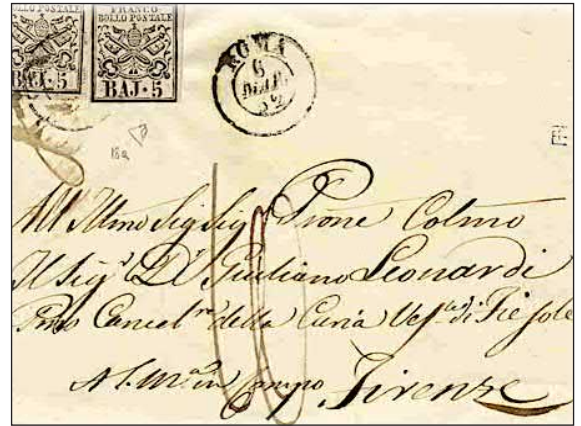 BOLLO POSTALE
BAJ·5
FRANCO
BOLLO POSTALE
BAJ·5
ROMA
6
MAR
52
18a
All' Illmo Sig Sig Prone Colmo
Il Sigr Dr Giuliano Leonardi
Cancelre della Curia Vesle di Fiesole
A S. Ma in Campo Firenze